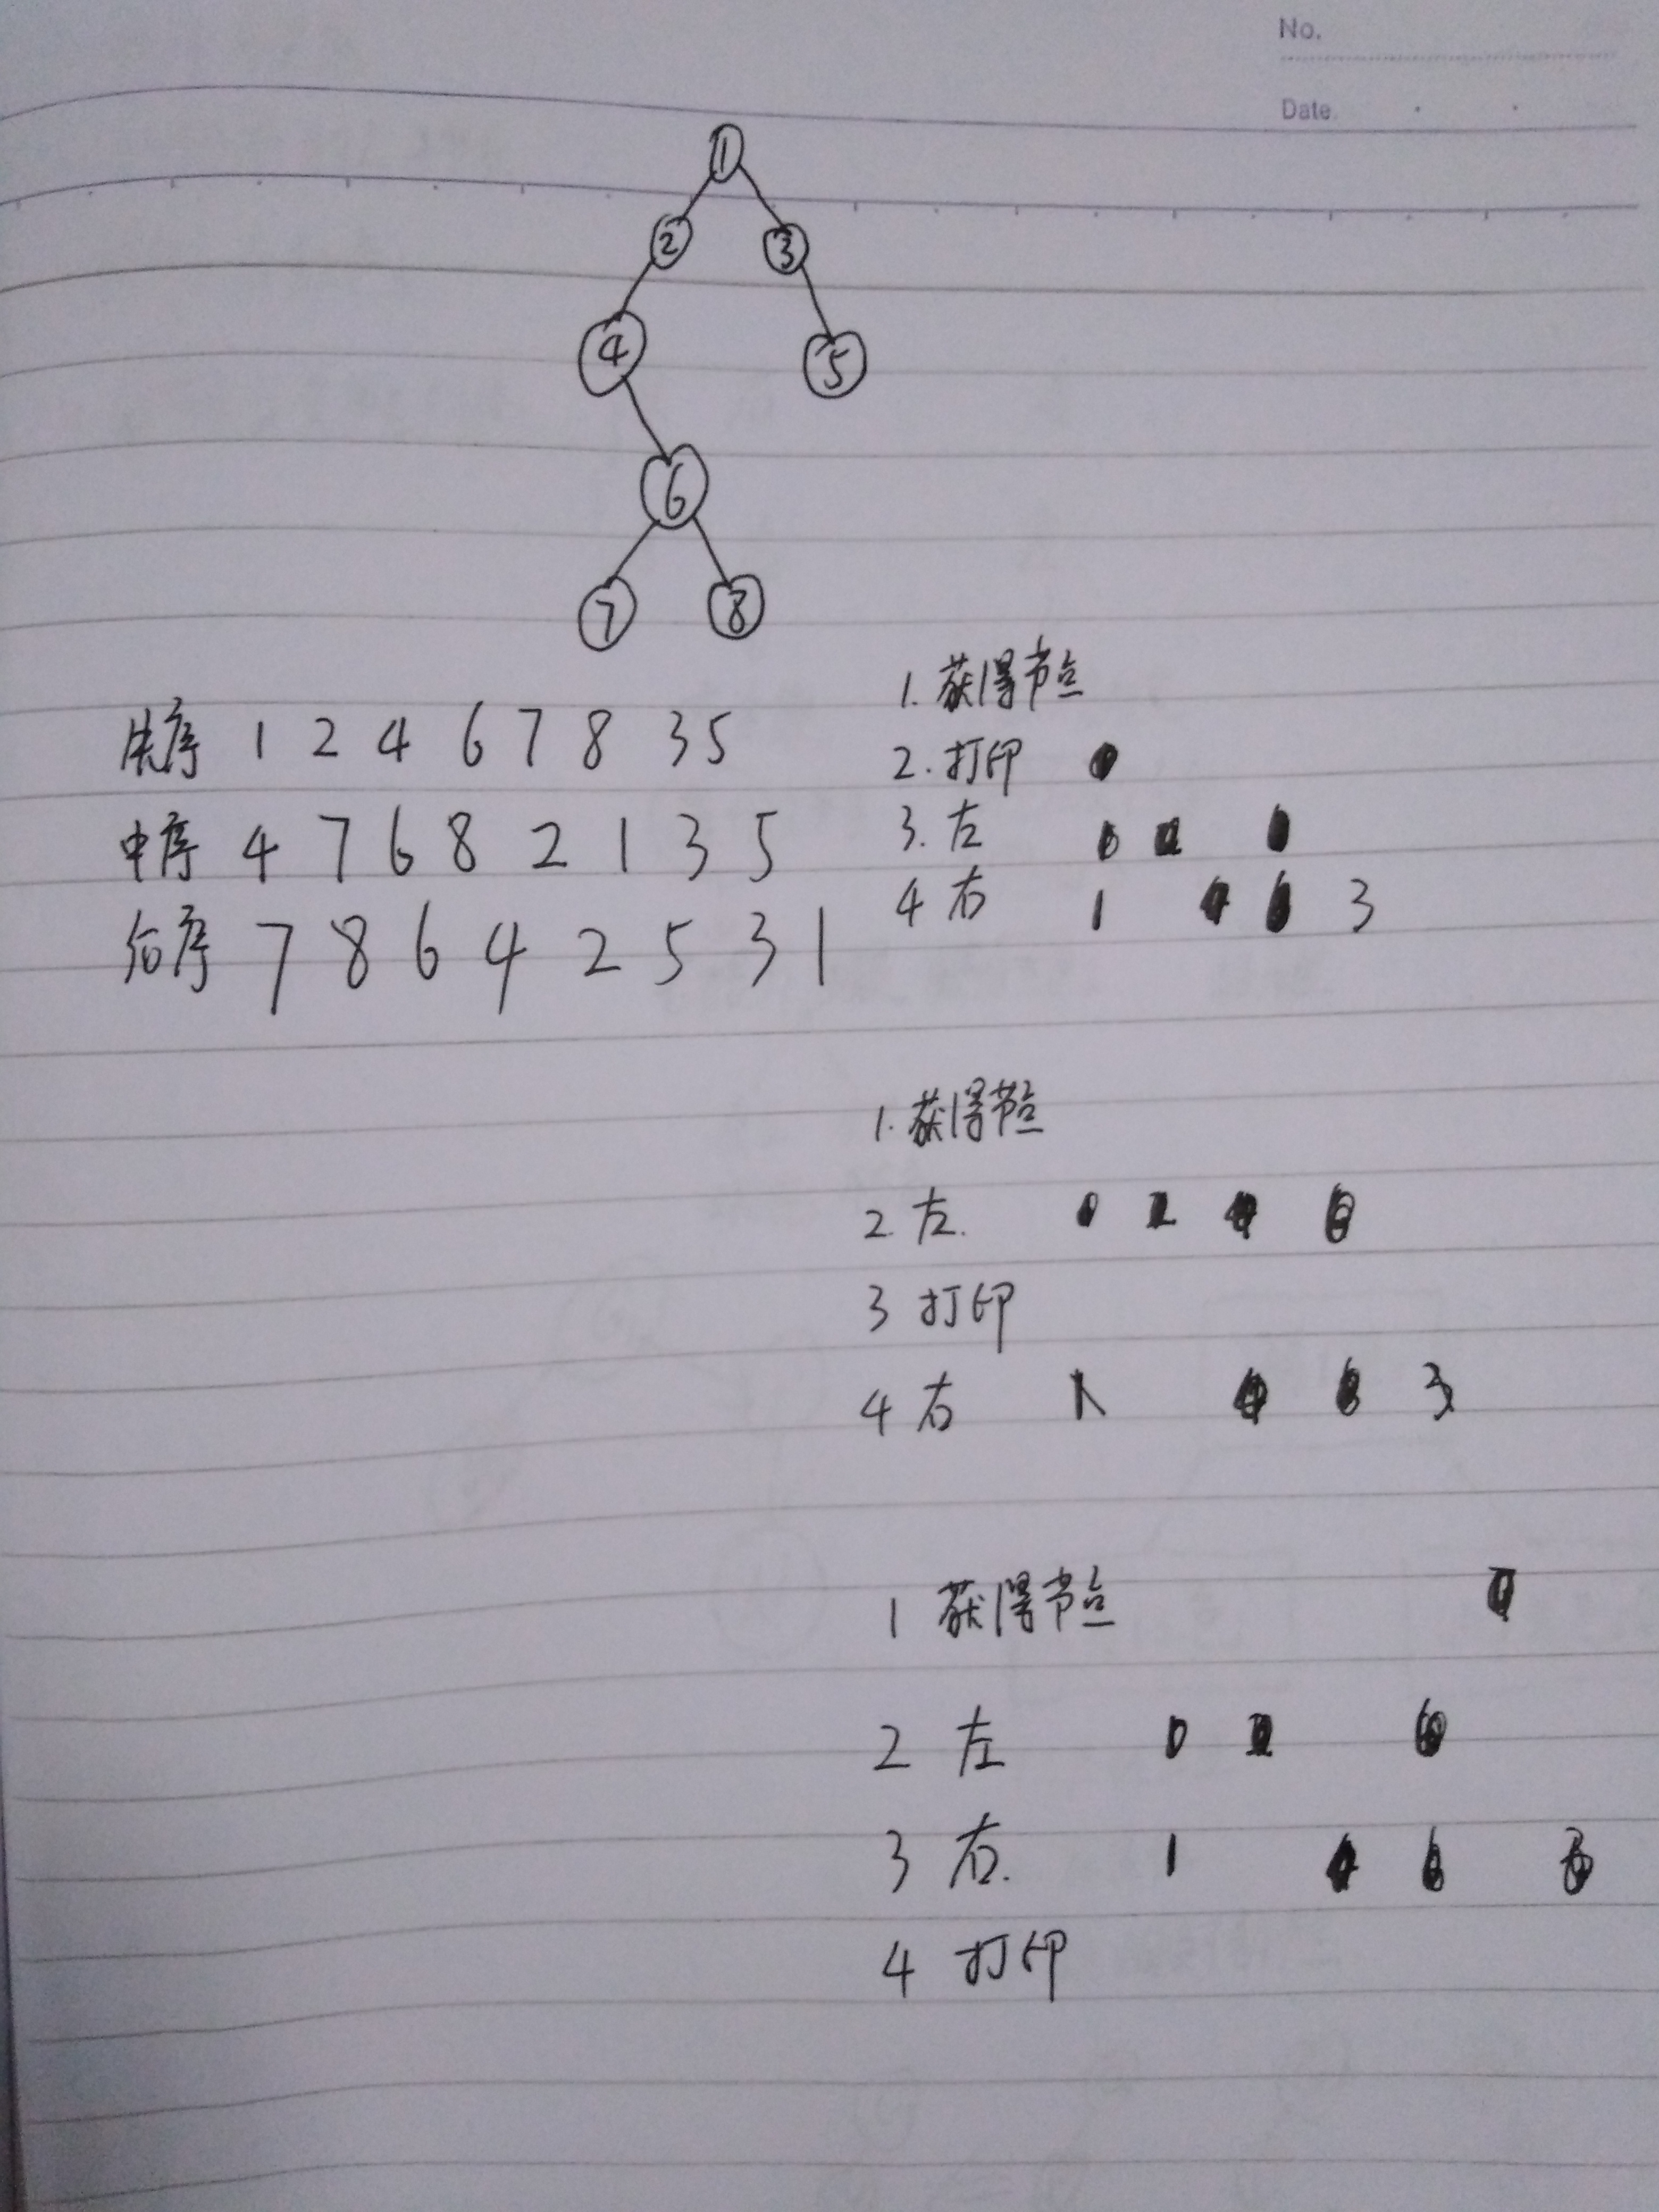 No.
Date.
1
2 3
4 5
6
7 8
先序 1 2 4 6 7 8 3 5
中序 4 7 6 8 2 1 3 5
后序 7 8 6 4 2 5 3 1
1. 获得节点
2. 打印
3. 左
4 右 1 3
1. 获得节点
2. 左.
3 打印
4 右 1 3
1 获得节点
2 左
3 右. 1
4 打印